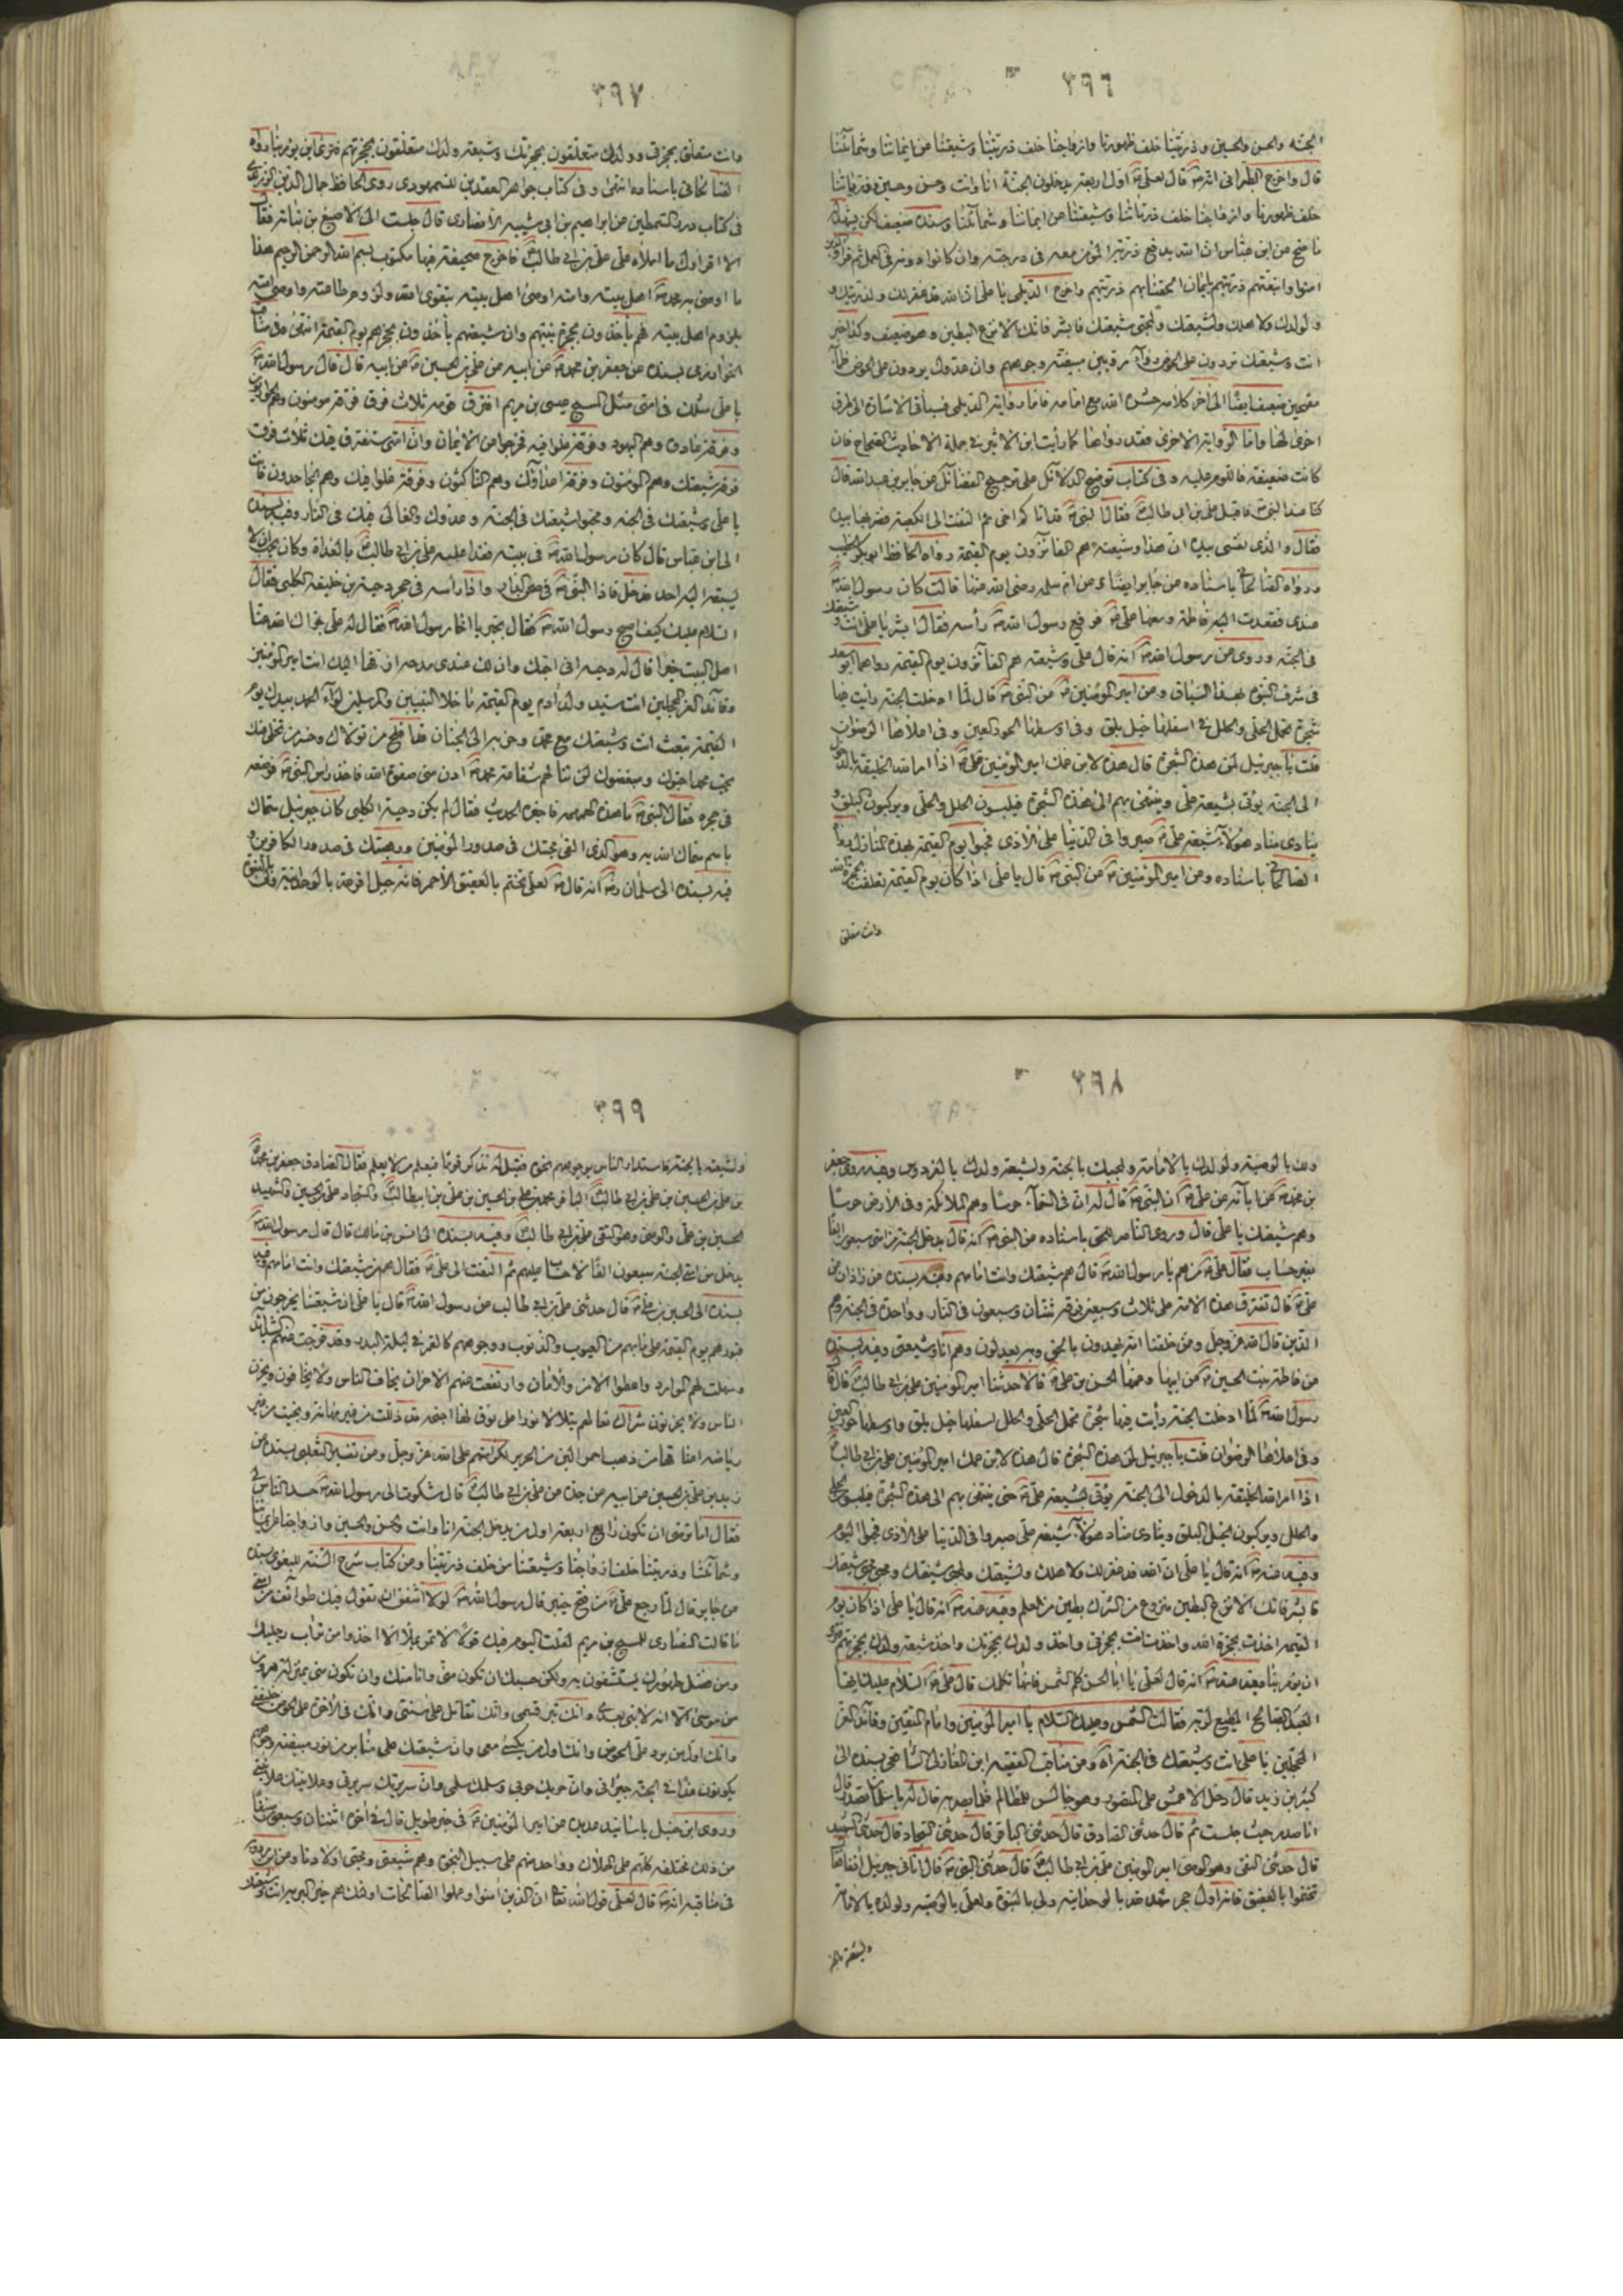 ٣٩٦
الجنة والحسن والحسين وذريتنا خلف ظهورنا وازواجنا خلف ذريتنا وشيعتنا عن ايماننا وشمائلنا
قال واخرج الطبراني انه قال لعلي اول اربعة يدخلون الجنة انا وانت وحسن وحسين وذرياتنا
خلف ظهورنا وازواجنا خلف ذرياتنا وشيعتنا عن ايماننا وشمائلنا وسنده ضعيف لكن يشهد له
ما صح عن ابن عباس ان الله يرفع ذرية المؤمن معه في درجته وان كانوا دونه في العمل ثم قرأ والذين
امنوا واتبعتهم ذريتهم بايمان الحقنا بهم ذريتهم واخرج الديلمي يا علي ان الله قد غفر لك ولذريتك و
ولولدك ولاهلك ولشيعتك ولمحبي شيعتك فابشر فانك الانزع البطين وهو ضعيف وكذا خبر
انت وشيعتك تردون علي الحوض رواء مرويين مبيضة وجوههم وان عدوك يردون على الحوض ظمآء
مقمحين ضعيف ايضا الى اخر كلامه حشره الله مع امامه فاما رواية الديلمي فسيأتي الاشارة الى طرق
اخرى لها واما الرواية الاخرى فقد رواها كما رأيت ابن الاثير في جملة الاحاديث الصحاح فان
كانت ضعيفة فاللوم عليه وفي كتاب توضيح الدلائل على ترجيح الفضائل عن جابر بن عبد الله قال
كنا عند النبي فاقبل علي بن ابي طالب فقال النبي قد اتاكم اخي ثم التفت الى الكعبة فضربها بيده
فقال والذي نفسي بيده ان هذا وشيعته هم الفائزون يوم القيمة رواه الحافظ ابو بكر الخطيب
ورواه الصالحاني باسناده عن جابر ايضا وعن ام سلمة رضي الله عنها قالت كان رسول الله
عندي فغدت اليه فاطمة ومعها علي فرفع رسول الله رأسه فقال ابشر يا علي انت وشيعتك
في الجنة وروى عن رسول الله انه قال علي وشيعته هم الفائزون يوم القيمة رواهما ابو سعد
في شرف النبوة بهذا السياق وعن امير المؤمنين عن النبي قال لما ادخلت الجنة رأيت فيها
شجرة تحمل الحلي والحلل في اسفلها خيل بلق وفي اوسطها الحور العين وفي اعلاها الرضوان
قلت يا جبرئيل لمن هذه الشجرة قال هذه لابن عمك امير المؤمنين علي اذا امر الله الخليقة بالدخول
الى الجنة يؤتى بشيعة علي وينتهى بهم الى هذه الشجرة فيلبسون الحلل والحلي ويركبون البلق و
ينادي مناد هؤلاء شيعة علي صبروا في الدنيا على الاذى فحبوا يوم القيمة بهذه المنازل رواه
الصالحاني باسناده وعن امير المؤمنين عن النبي قال يا علي اذا كان يوم القيمة تعلقت بحجزة الله
وانت متعلق
٣٩٧
وانت متعلق بحجزتي وولدك متعلقون بحجزتك وشيعة ولدك متعلقون بحجزتهم فترى اين يؤمر بنا رواه
الصالحاني باسناده انتهى وفي كتاب جواهر العقدين للسمهودي روى الحافظ جمال الدين الزرندي
في كتاب درر السمطين عن ابراهيم بن ابي شيبة الانصاري قال جلست الى الاصبغ بن نباتة فقال
الا اقرأك ما املاه علي علي بن ابي طالب فاخرج صحيفة فيها مكتوب بسم الله الرحمن الرحيم هذا
ما اوصى به محمد اهل بيته وامته اوصى اهل بيته بتقوى الله ولزوم طاعته واوصى امته
بلزوم اهل بيته فهم يأخذون بحجزة نبيهم وان شيعتهم يأخذون بحجزهم يوم القيمة انتهى وفي مناقب
الخوارزمي بسنده عن جعفر بن محمد عن ابيه عن علي بن الحسين عن ابيه قال قال رسول الله
يا علي مثلك في امتي مثل المسيح عيسى بن مريم افترق قومه ثلاث فرق فرقة مؤمنون وهم الحواريون
وفرقة عادوه وهم اليهود وفرقة غلوا فيه فخرجوا من الايمان وان امتي ستفترق فيك ثلاث فرق
فرقة شيعتك وهم المؤمنون وفرقة اعداؤك وهم الناكثون وفرقة غلوا فيك وهم الجاحدون فانت
يا علي وشيعتك في الجنة ومحبو شيعتك في الجنة وعدوك والغالي فيك في النار وفيه بسنده
الى ابن عباس قال كان رسول الله في بيته فغدا عليه علي بن ابي طالب بالغداة وكان يحب ان لا
يسبقه اليه احد فدخل فاذا النبي في صحن الدار واذا رأسه في حجر دحية بن خليفة الكلبي فقال
السلام عليك كيف اصبح رسول الله فقال بخير يا اخا رسول الله فقال له علي جزاك الله عنا
اهل البيت خيرا قال له دحية اني احبك وان لك عندي مدحة ازفها اليك انت امير المؤمنين
وقائد الغر المحجلين انت سيد ولد آدم يوم القيمة ما خلا النبيين والمرسلين لواء الحمد بيدك يوم
القيمة تبعث انت وشيعتك مع محمد وحزبه الى الجنان زفا افلح من تولاك وخسر من تخلى منك
بحب محمد احبوك ومبغضوك لن تنالهم شفاعة محمد ادن مني صفوة الله فاخذ رأس النبي فوضعه
في حجره فقال النبي ما هذه الهمهمة فاخبره الحديث فقال لم يكن دحية الكلبي كان جبرئيل سماك
باسم سماك الله به وهو الذي القى محبتك في صدور المؤمنين ورهبتك في صدور الكافرين و
فيه بسنده الى سلمان انه قال لعلي تختم بالعقيق الاحمر فانه جبل اقر لله بالوحدانية ولي بالنبوة
٣٩٨
ولك بالوصية ولولدك بالامامة ولمحبيك بالجنة ولشيعة ولدك بالفردوس وفيه روى جعفر
بن محمد عن ابائه عن علي ان النبي قال له ان في السماء حرسا وهم الملائكة وفي الارض حرسا
وهم شيعتك يا علي قال وروى الناصر للحق باسناده عن النبي انه قال يدخل الجنة من امتي سبعون الفا
بغير حساب فقال علي من هم يا رسول الله قال هم شيعتك وانت امامهم وفيه بسنده عن زاذان عن
علي قال تفترق هذه الامة على ثلاث وسبعين فرقة ثنتان وسبعون في النار وواحدة في الجنة وهم
الذين قال الله عز وجل وممن خلقنا امة يهدون بالحق وبه يعدلون وهم انا وشيعتي وفيه بسنده
عن فاطمة بنت الحسين عن ابيها وعمها الحسن بن علي قالا حدثنا امير المؤمنين علي بن ابي طالب قال قال
رسول الله لما ادخلت الجنة رأيت فيها شجرة تحمل الحلي والحلل اسفلها خيل بلق واوسطها حور العين
وفي اعلاها الرضوان قلت يا جبرئيل لمن هذه الشجرة قال هذه لابن عمك امير المؤمنين علي بن ابي طالب
اذا امر الله الخليقة بالدخول الى الجنة يؤتى بشيعة علي حتى ينتهى بهم الى هذه الشجرة فيلبسون الحلي
والحلل ويركبون الخيل البلق وينادي مناد هؤلاء شيعة علي صبروا في الدنيا على الاذى فحبوا اليوم
وفيه عنه انه قال يا علي ان الله قد غفر لك ولاهلك ولشيعتك ولمحبي شيعتك ومحبي محبي شيعتك
فابشر فانك الانزع البطين منزوع من الشرك بطين من العلم وفيه عنه انه قال يا علي اذا كان يوم
القيمة اخذت بحجزة الله واخذت انت بحجزتي واخذ ولدك بحجزتك واخذ شيعة ولدك بحجزتهم فترى
اين يؤمر بنا وفيه عنه انه قال لعلي يا ابا الحسن كلم الشمس فانها تكلمك قال علي السلام عليك ايها
العبد الصالح المطيع لربه فقالت الشمس وعليك السلام يا امير المؤمنين وامام المتقين وقائد الغر
المحجلين يا علي انت وشيعتك في الجنة اه ومن مناقب الفقيه ابن المغازلي الشافعي بسنده الى
كثير بن زيد قال دخل الاعمش على المنصور وهو جالس للمظالم فلما بصر به قال له يا سليمان تصدر قال
انا صدر حيث جلست ثم قال حدثني الصادق قال حدثني الباقر قال حدثني السجاد قال حدثني الشهيد
قال حدثني التقي وهو الوصي امير المؤمنين علي بن ابي طالب قال حدثني النبي قال اتاني جبرئيل آنفا فقال
تختموا بالعقيق فانه اول حجر شهد لله بالوحدانية ولي بالنبوة ولعلي بالوصية ولولده بالامامة
ولشيعته بالجنة
٣٩٩
ولشيعته بالجنة فاستدار الناس بوجوههم نحوه فقيل له تذكر قوما فيعلم من لا يعلم فقال الصادق جعفر بن محمد
بن علي بن الحسين بن علي بن ابي طالب الباقر محمد بن علي بن الحسين بن علي بن ابيطالب والسجاد علي بن الحسين والشهيد
الحسين بن علي والوصي وهو التقي علي بن ابي طالب وفيه بسنده الى انس بن مالك قال قال رسول الله
يدخل من امتي الجنة سبعون الفا لا حساب عليهم ثم التفت الى علي فقال هم من شيعتك وانت امامهم وفيه
بسنده الى الحسين بن علي قال حدثني علي بن ابي طالب عن رسول الله قال يا علي ان شيعتنا يخرجون من
قبورهم يوم القيمة على ما بهم من العيوب والذنوب ووجوههم كالقمر في ليلة البدر وقد فرجت عنهم الشدائد
وسهلت لهم الموارد واعطوا الامن والامان وارتفعت عنهم الاحزان يخاف الناس ولا يخافون ويحزن
الناس ولا يحزنون شراك نعالهم يتلالأ نورا على نوق لها اجنحة قد ذللت من غير مهانة ونجبت من غير
رياضة اعناقها من ذهب احمر الين من الحرير لكرامتهم على الله عز وجل ومن تفسير الثعلبي بسنده عن
زيد بن علي بن الحسين عن ابيه عن جده عن علي بن ابي طالب قال شكوت الى رسول الله حسد الناس لي
فقال اما ترضى ان تكون رابع اربعة اول من يدخل الجنة انا وانت والحسن والحسين وازواجنا عن ايماننا
وشمائلنا وذريتنا خلف ازواجنا وشيعتنا من خلف ذريتنا ومن كتاب شرح السنة للبغوي بسنده
عن جابر قال لما رجع علي من فتح خيبر قال رسول الله لولا اشفق ان تقول فيك طوائف من امتي
ما قالت النصارى للمسيح بن مريم لقلت اليوم فيك قولا لا تمر بملأ الا اخذوا من تراب رجليك
ومن فضل طهورك يستشفون به ولكن حسبك ان تكون مني وانا منك وان تكون مني بمنزلة هرون
من موسى الا انه لا نبي بعدي وانك تبرئ ذمتي وانك تقاتل على سنتي وانك في الاخرة على الحوض خليفتي
وانك اول من يرد علي الحوض وانك اول من يكسى معي وان شيعتك على منابر من نور مبيضة وجوههم
يكونون غدا في الجنة جيراني وان حربك حربي وسلمك سلمي وان سريرتك سريرتي وعلانيتك علانيتي
وروى ابن حنبل باسانيد عديدة عن امير المؤمنين في خبر طويل قال في اخره اثنتان وسبعون فرقة
من ذلك مختلفة كلهم على الهلاك وواحدة منهم على سبيل النجاة وهم شيعتي ومحبي اولادنا وعن ابن مردويه
في مناقبه انه قال لعلي قول الله تعالى ان الذين امنوا وعملوا الصالحات اولئك هم خير البرية انت وشيعتك